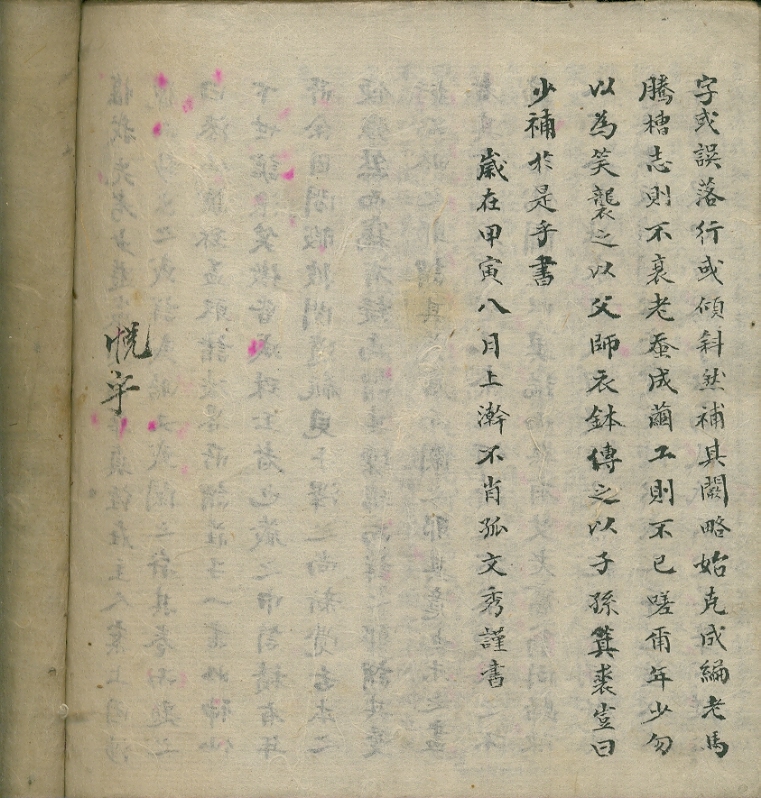 字或誤落行或傾斜然補其闕略始克成編老馬
騰槽志則不衰老蚕成繭工則不已嗟爾年少勿
以為笑襲之以父師衣鉢傳之以子孫箕裘豈曰
少補於是乎書
歲在甲寅八月上澣不肖孤文秀謹書